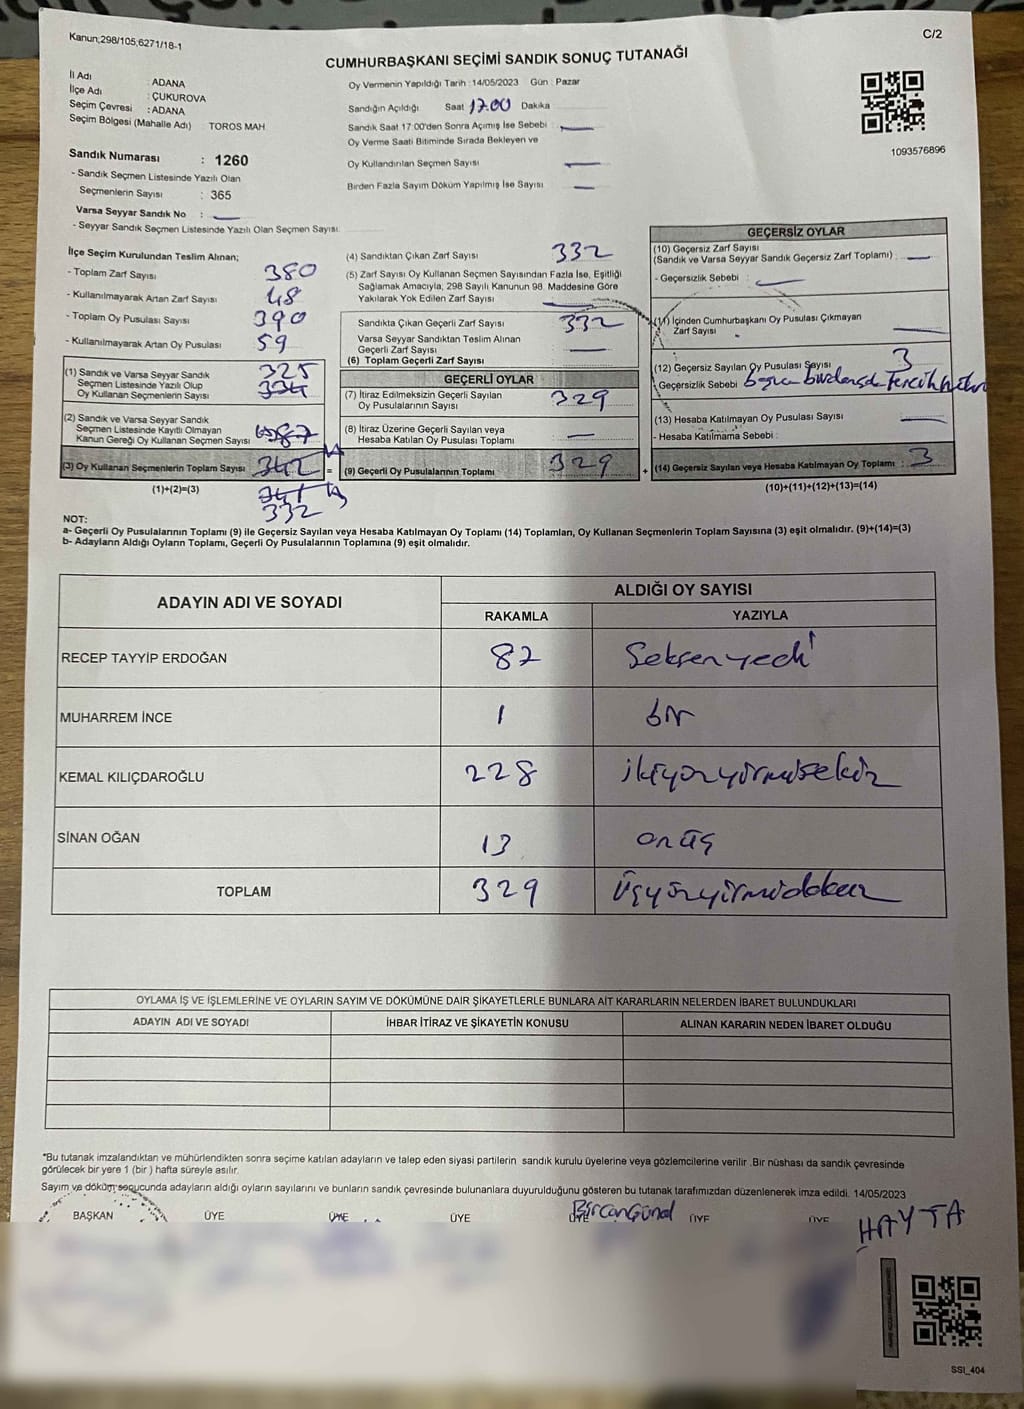 Kanun;298/105;6271/18-1
C/2
CUMHURBAŞKANI SEÇİMİ SANDIK SONUÇ TUTANAĞI
İl Adı : ADANA
İlçe Adı : ÇUKUROVA
Seçim Çevresi : ADANA
Seçim Bölgesi (Mahalle Adı) TOROS MAH
Oy Vermenin Yapıldığı Tarih : 14/05/2023 Gün : Pazar
Sandığın Açıldığı Saat 17.00 Dakika
Sandık Saat 17:00'den Sonra Açımış İse Sebebi :
Oy Verme Saati Bitiminde Sırada Bekleyen ve
Oy Kullandırılan Seçmen Sayısı
Birden Fazla Sayım Döküm Yapılmış İse Sayısı
1093576896
Sandık Numarası : 1260
- Sandık Seçmen Listesinde Yazılı Olan
Seçmenlerin Sayısı : 365
Varsa Seyyar Sandık No :
- Seyyar Sandık Seçmen Listesinde Yazılı Olan Seçmen Sayısı:
İlçe Seçim Kurulundan Teslim Alınan;
- Toplam Zarf Sayısı 380
- Kullanılmayarak Artan Zarf Sayısı 48
- Toplam Oy Pusulası Sayısı 390
- Kullanılmayarak Artan Oy Pusulası 59
(1) Sandık ve Varsa Seyyar Sandık
Seçmen Listesinde Yazılı Olup
Oy Kullanan Seçmenlerin Sayısı
325
334
(2) Sandık ve Varsa Seyyar Sandık
Seçmen Listesinde Kayıtlı Olmayan
Kanun Gereği Oy Kullanan Seçmen Sayısı
7
(3) Oy Kullanan Seçmenlerin Toplam Sayısı 342 =
(1)+(2)=(3)
341
332
(4) Sandıktan Çıkan Zarf Sayısı 332
(5) Zarf Sayısı Oy Kullanan Seçmen Sayısından Fazla İse, Eşitliği
Sağlamak Amacıyla, 298 Sayılı Kanunun 98. Maddesine Göre
Yakılarak Yok Edilen Zarf Sayısı
Sandıkta Çıkan Geçerli Zarf Sayısı 332
Varsa Seyyar Sandıktan Teslim Alınan
Geçerli Zarf Sayısı
(6) Toplam Geçerli Zarf Sayısı
GEÇERLİ OYLAR
(7) İtiraz Edilmeksizin Geçerli Sayılan
Oy Pusulalarının Sayısı 329
(8) İtiraz Üzerine Geçerli Sayılan veya
Hesaba Katılan Oy Pusulası Toplamı
(9) Geçerli Oy Pusulalarının Toplamı 329 +
GEÇERSİZ OYLAR
(10) Geçersiz Zarf Sayısı
(Sandık ve Varsa Seyyar Sandık Geçersiz Zarf Toplamı) :
- Geçersizlik Sebebi :
(11) İçinden Cumhurbaşkanı Oy Pusulası Çıkmayan
Zarf Sayısı
(12) Geçersiz Sayılan Oy Pusulası Sayısı 3
Geçersizlik Sebebi
(13) Hesaba Katılmayan Oy Pusulası Sayısı
- Hesaba Katılmama Sebebi :
(14) Geçersiz Sayılan veya Hesaba Katılmayan Oy Toplamı : 3
(10)+(11)+(12)+(13)=(14)
NOT:
a- Geçerli Oy Pusulalarının Toplamı (9) ile Geçersiz Sayılan veya Hesaba Katılmayan Oy Toplamı (14) Toplamları, Oy Kullanan Seçmenlerin Toplam Sayısına (3) eşit olmalıdır. (9)+(14)=(3)
b- Adayların Aldığı Oyların Toplamı, Geçerli Oy Pusulalarının Toplamına (9) eşit olmalıdır.
ADAYIN ADI VE SOYADI
ALDIĞI OY SAYISI
RAKAMLA YAZIYLA
RECEP TAYYİP ERDOĞAN 87 Seksenyedi
MUHARREM İNCE 1 bir
KEMAL KILIÇDAROĞLU 228 ikiyüzyirmisekiz
SİNAN OĞAN 13 onüç
TOPLAM 329 Üçyüzyirmidokuz
OYLAMA İŞ VE İŞLEMLERİNE VE OYLARIN SAYIM VE DÖKÜMÜNE DAİR ŞİKAYETLERLE BUNLARA AİT KARARLARIN NELERDEN İBARET BULUNDUKLARI
ADAYIN ADI VE SOYADI İHBAR İTİRAZ VE ŞİKAYETİN KONUSU ALINAN KARARIN NEDEN İBARET OLDUĞU
*Bu tutanak imzalandıktan ve mühürlendikten sonra seçime katılan adayların ve talep eden siyasi partilerin sandık kurulu üyelerine veya gözlemcilerine verilir .Bir nüshası da sandık çevresinde
görülecek bir yere 1 (bir ) hafta süreyle asılır.
Sayım ve döküm sonucunda adayların aldığı oyların sayılarını ve bunların sandık çevresinde bulunanlara duyurulduğunu gösteren bu tutanak tarafımızdan düzenlenerek imza edildi. 14/05/2023
BAŞKAN ÜYE ÜYE ÜYE ÜYE ÜYE ÜYE
Bircan Günal
HAYTA
SSI_404